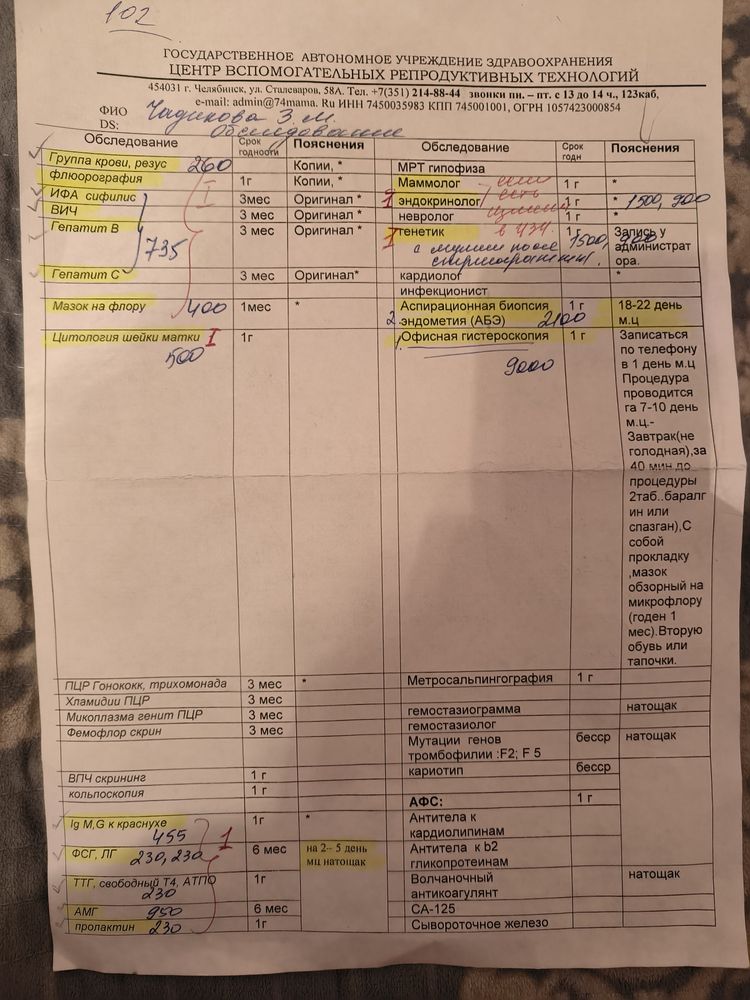 102
ГОСУДАРСТВЕННОЕ АВТОНОМНОЕ УЧРЕЖДЕНИЕ ЗДРАВООХРАНЕНИЯ
ЦЕНТР ВСПОМОГАТЕЛЬНЫХ РЕПРОДУКТИВНЫХ ТЕХНОЛОГИЙ
454031 г. Челябинск, ул. Сталеваров, 58А. Тел. +7(351) 214-88-44 звонки пн. – пт. с 13 до 14 ч., 123каб,
e-mail: admin@74mama. Ru ИНН 7450035983 КПП 745001001, ОГРН 1057423000854
ФИО Чадикова З. М.
DS: Обследование
Обследование Срок годности Пояснения Обследование Срок годн Пояснения
Группа крови, резус 260 Копии, * МРТ гипофиза
флюорография 1г Копии, * Маммолог если 1 г *
ИФА сифилис 3мес Оригинал * 1 эндокринолог есть 1 г * 1500, 900
ВИЧ 3 мес Оригинал * невролог 1 г *
Гепатит В 735 3 мес Оригинал * 1 генетик в УЗИ. 1 г Запись у
с мужем после 1500, 900 администрат
спермограммы. ора.
Гепатит С 3 мес Оригинал* кардиолог *
инфекционист
Мазок на флору 400 1мес * Аспирационная биопсия 1 г 18-22 день
2 эндометия (АБЭ) 2100 м.ц
Цитология шейки матки I 1г Офисная гистероскопия 1 г Записаться
500 9000 по телефону
в 1 день м.ц
Процедура
проводится
га 7-10 день
м.ц.-
Завтрак(не
голодная),за
40 мин до
процедуры
2таб..баралг
ин или
спазган),С
собой
прокладку
,мазок
обзорный на
микрофлору
(годен 1
мес).Вторую
обувь или
тапочки.
ПЦР Гонококк, трихомонада 3 мес * Метросальпингография 1 г
Хламидии ПЦР 3 мес
Микоплазма генит ПЦР 3 мес гемостазиограмма натощак
Фемофлор скрин 3 мес гемостазиолог
Мутации генов бесср натощак
тромбофилии :F2; F 5
ВПЧ скрининг 1 г кариотип бесср
кольпоскопия 1 г
АФС: 1 г
Ig M,G к краснухе 1г * Антитела к
455 кардиолипинам
ФСГ, ЛГ 230, 230 6 мес на 2– 5 день Антитела к b2
1 мц натощак гликопротеинам
ТТГ, свободный Т4, АТПО 1г Волчаночный натощак
230 антикоагулянт
АМГ 950 6 мес СА-125
пролактин 230 1г Сывороточное железо